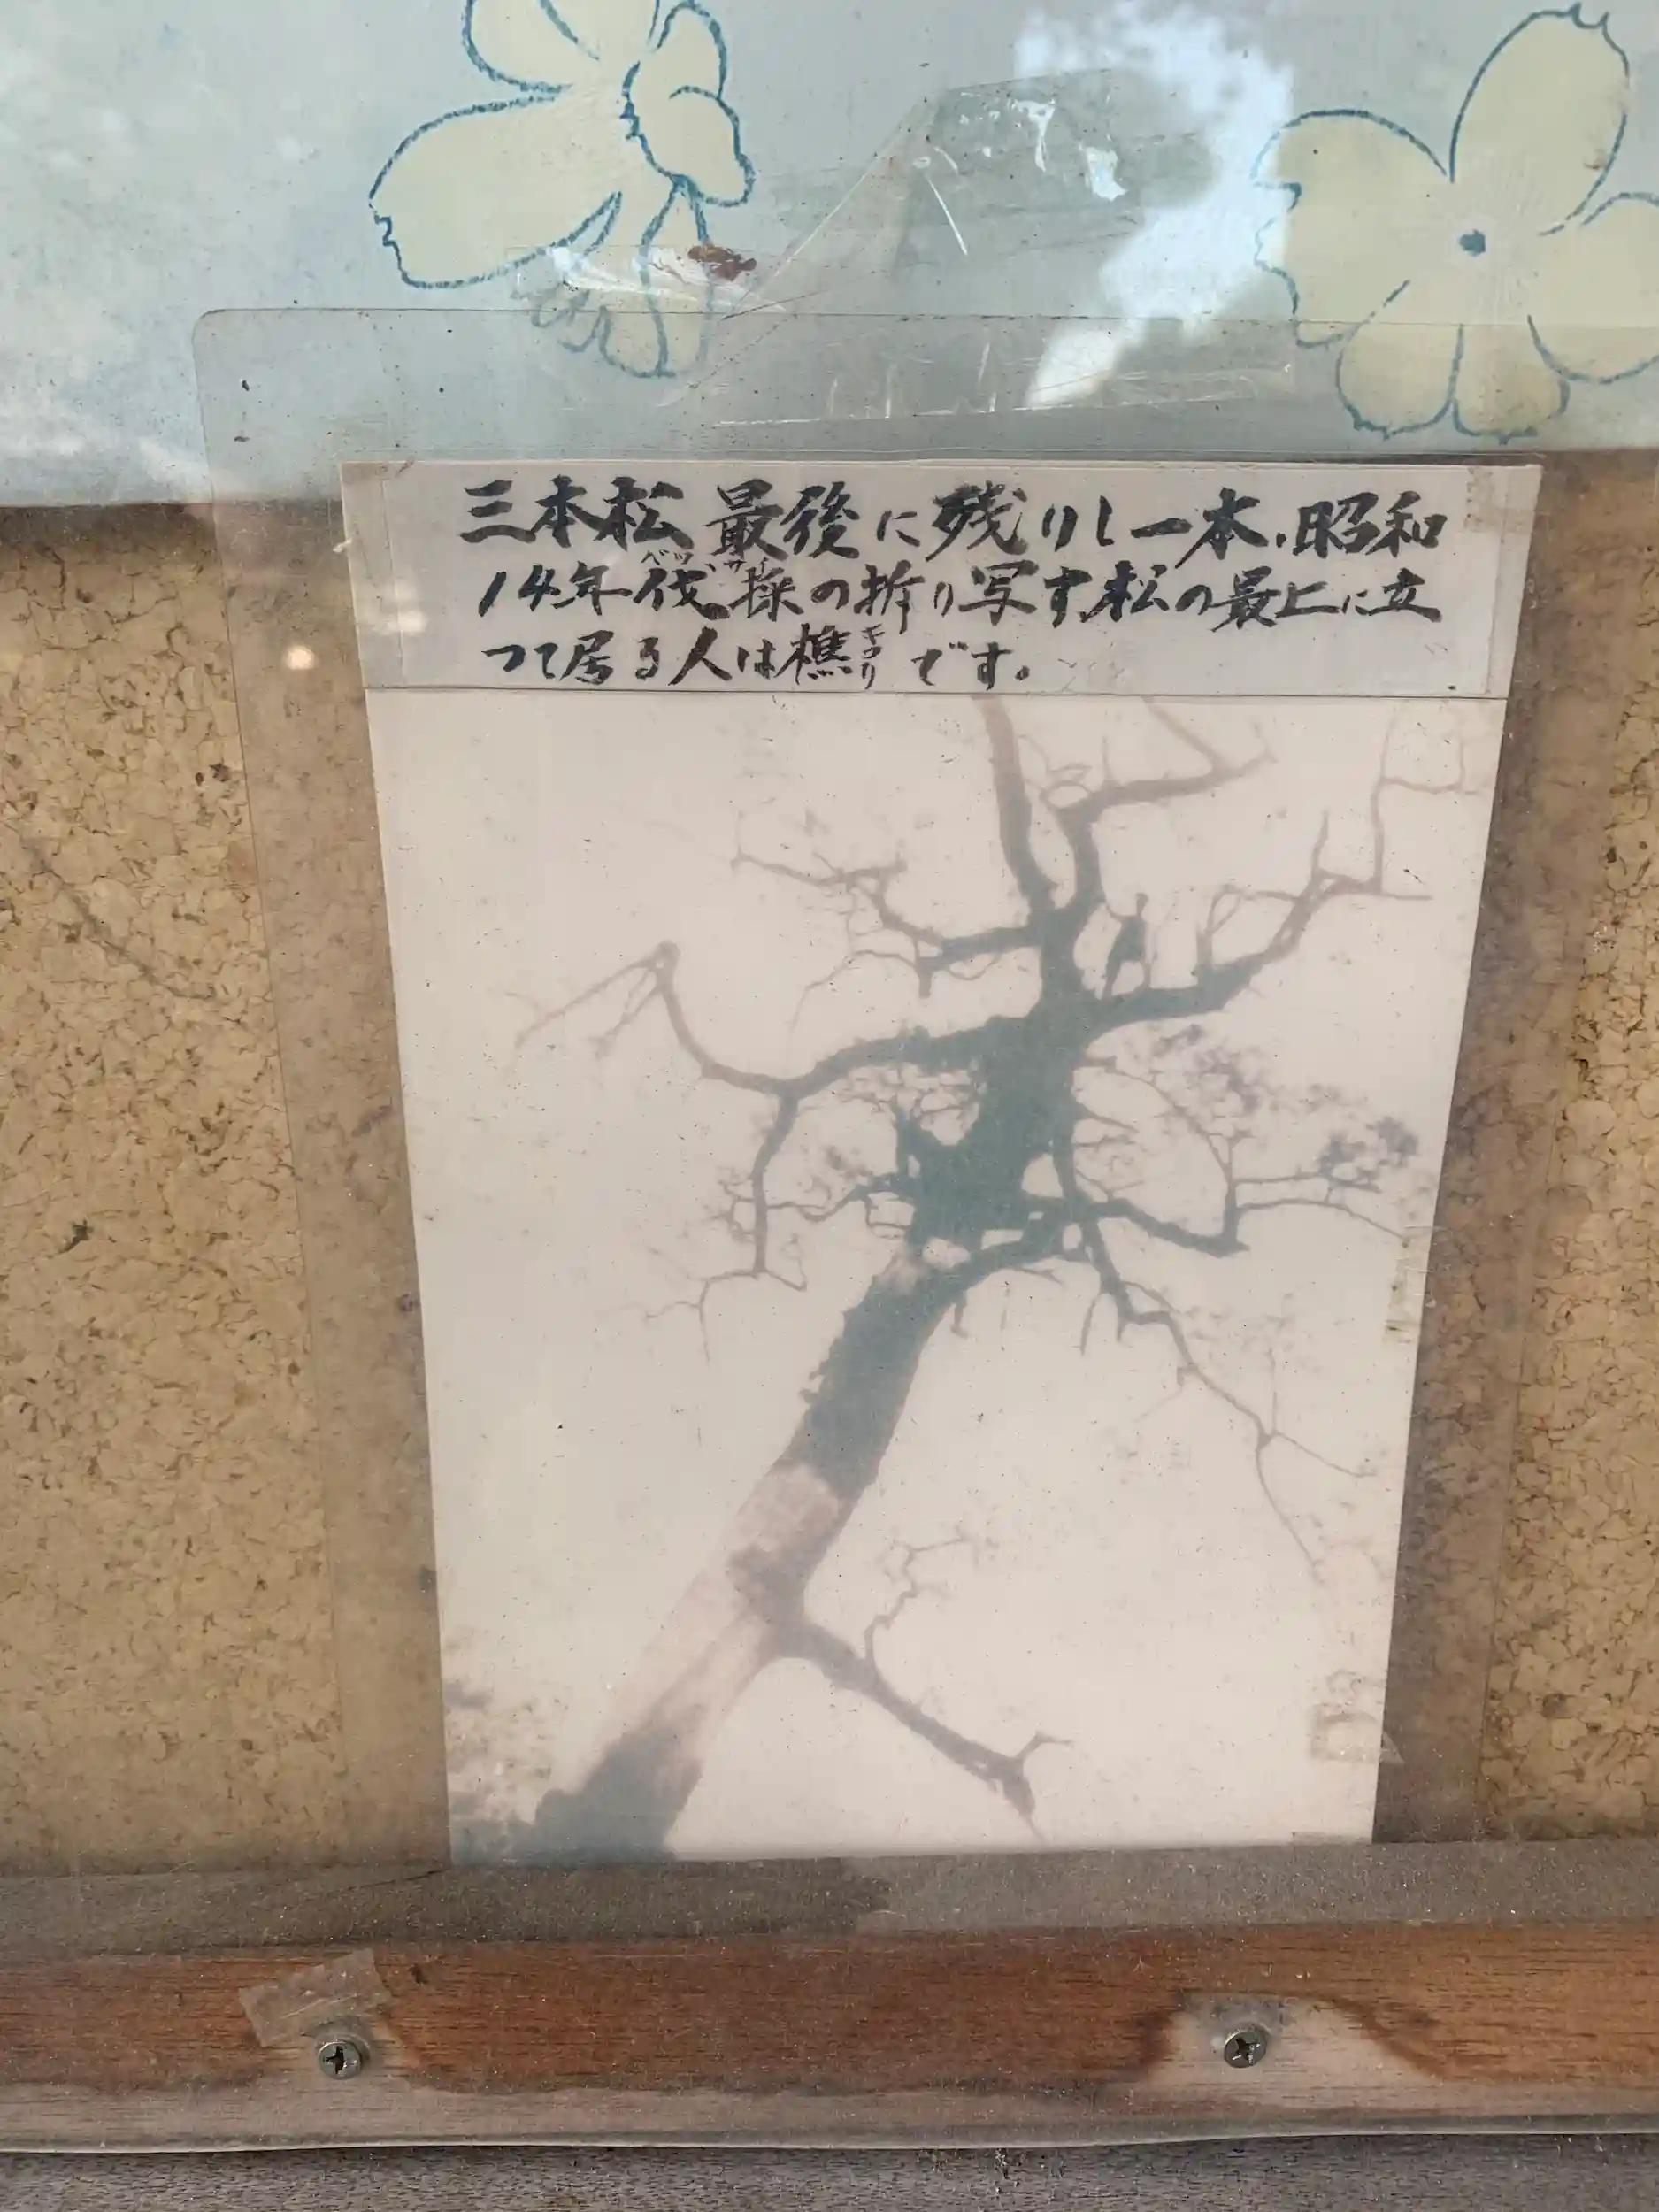 三本松最後に残りし一本、昭和
14年伐採の折り写す松の最上に立
バッサイ
つて居る人は樵です。
キコリ